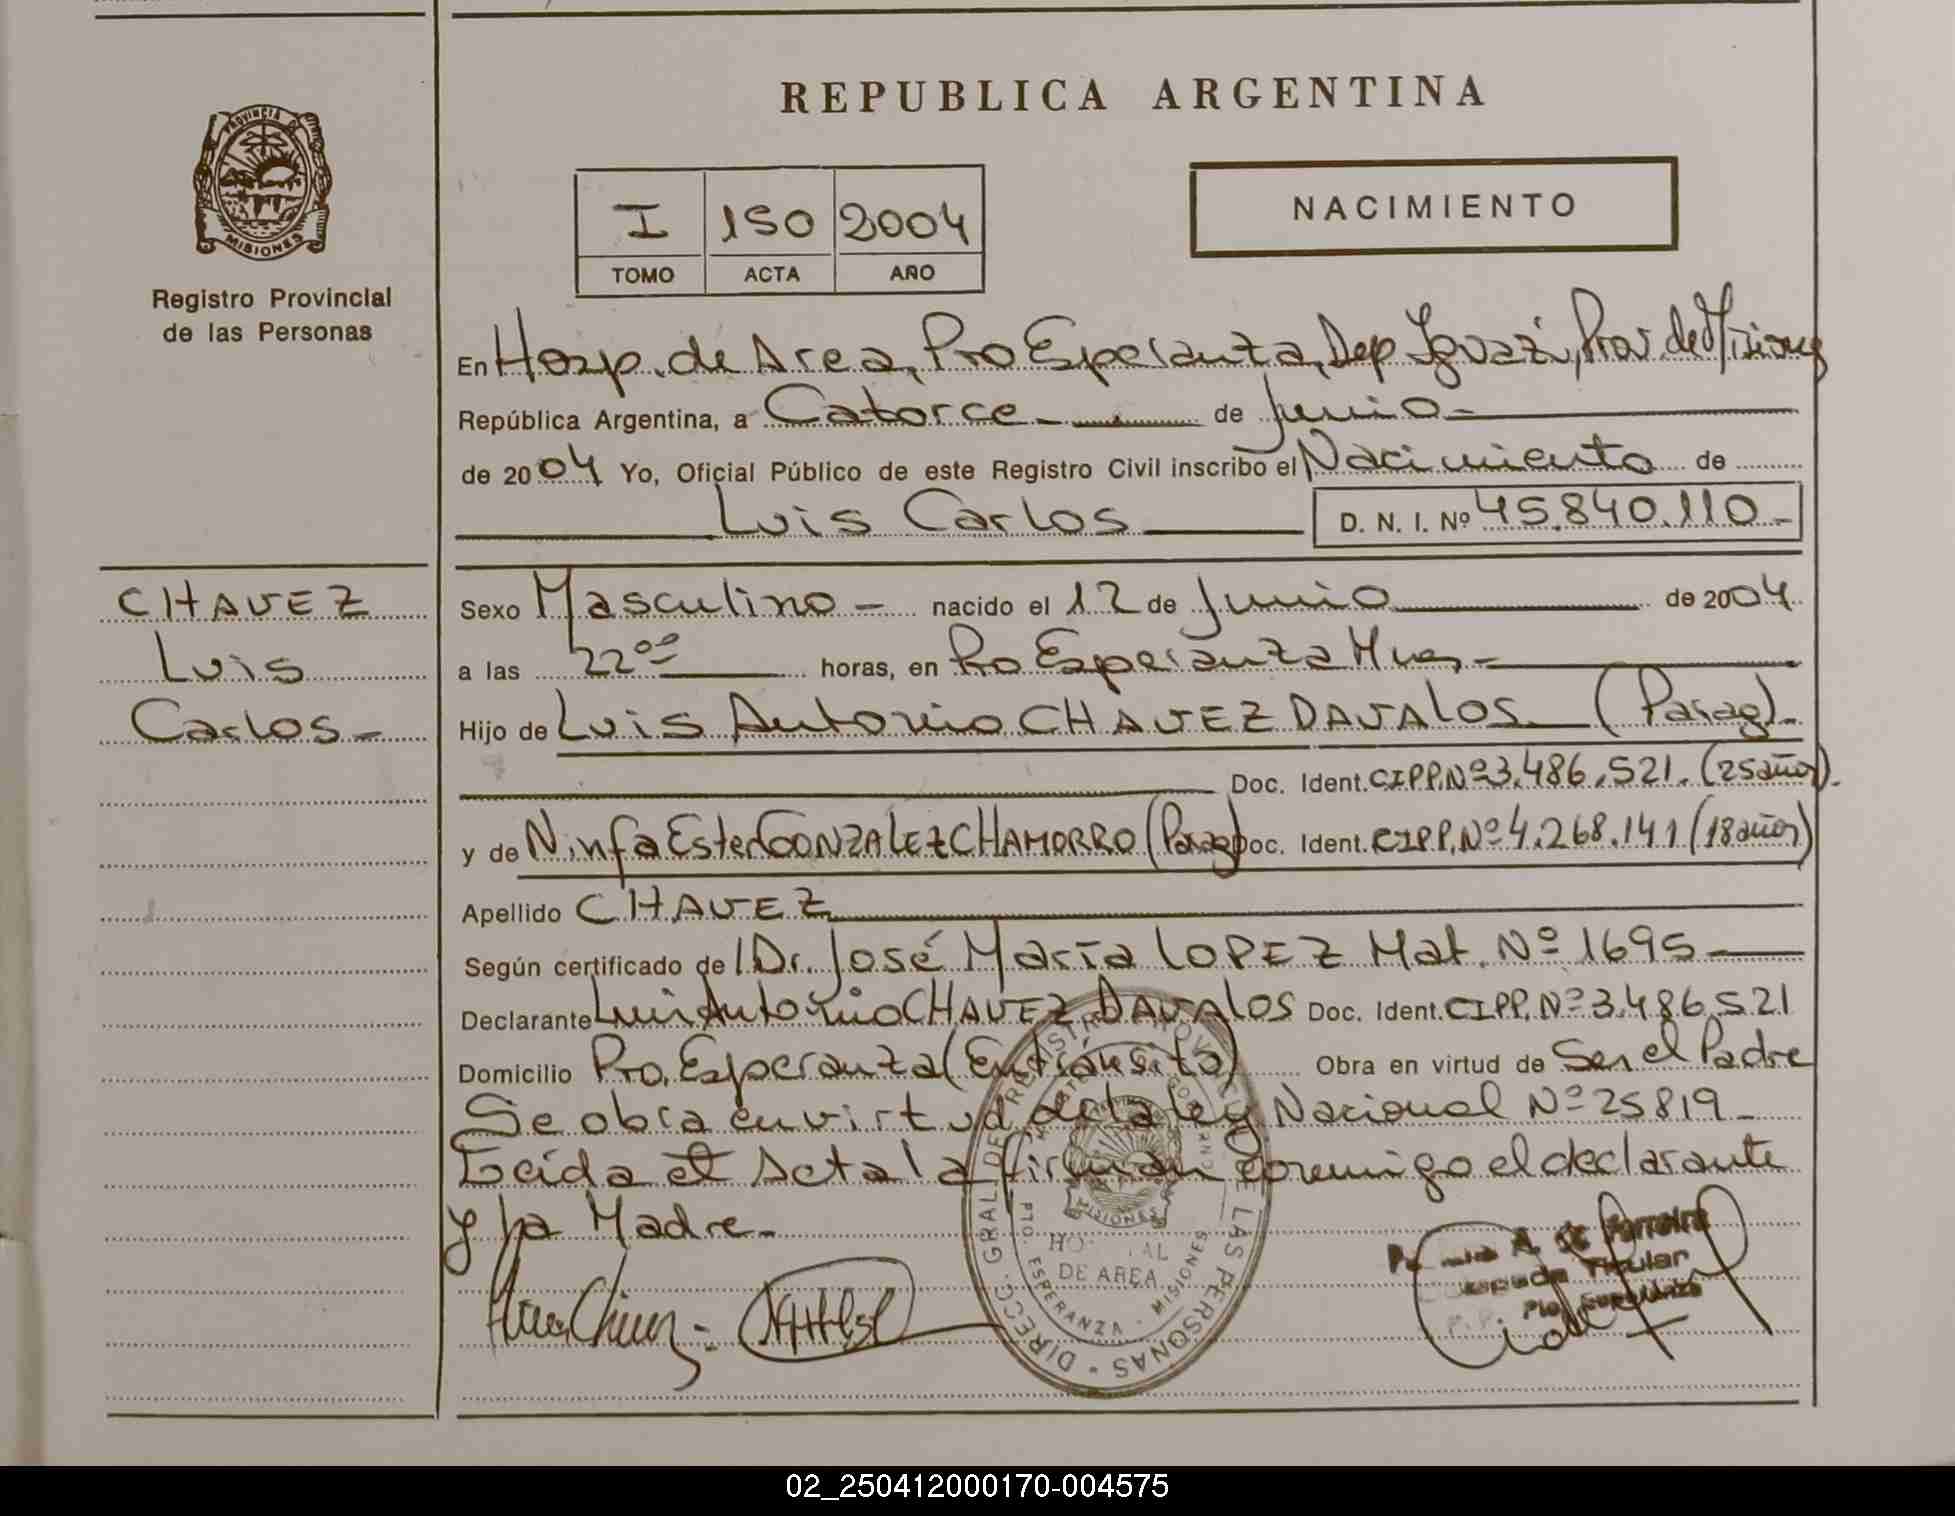 REPUBLICA ARGENTINA
PROVINCIA DE
MISIONES
Registro Provincial
de las Personas
I 150 2004
TOMO ACTA AÑO
NACIMIENTO
En Hosp. de Area, Pto Esperanza, Dep Iguazú, Prov. de Misiones
República Argentina, a Catorce de Junio
de 2004 Yo, Oficial Público de este Registro Civil inscribo el Nacimiento de
Luis Carlos D. N. I. Nº 45.840.110
CHAVEZ
Luis
Carlos
Sexo Masculino nacido el 12 de Junio de 2004
a las 22ºº horas, en Pto Esperanza Mnes
Hijo de Luis Antonio CHAVEZ DAVALOS (Parag)
Doc. Ident. CIPP.Nº 3.486.521. (25 años)
y de Ninfa Ester GONZALEZ CHAMORRO (Parag) Doc. Ident. CIPP.Nº 4.268.141 (18 años)
Apellido CHAVEZ
Según certificado de Dr. José María LOPEZ Mat. Nº 1695
Declarante Luis Antonio CHAVEZ DAVALOS Doc. Ident. CIPP.Nº 3.486.521
Domicilio Pto. Esperanza (En tránsito) Obra en virtud de Ser el Padre
Se obra en virtud de la ley Nacional Nº 25819
Leida el Acta la firman conmigo el declarante
y la Madre
DIRECC. GRAL. DE REGISTRO PROVINCIAL DE LAS PERSONAS
MISIONES
HOSPITAL
DE AREA
PTO. ESPERANZA - MISIONES
A. de Ferreira
Titular
Pto. Esperanza
02_250412000170-004575